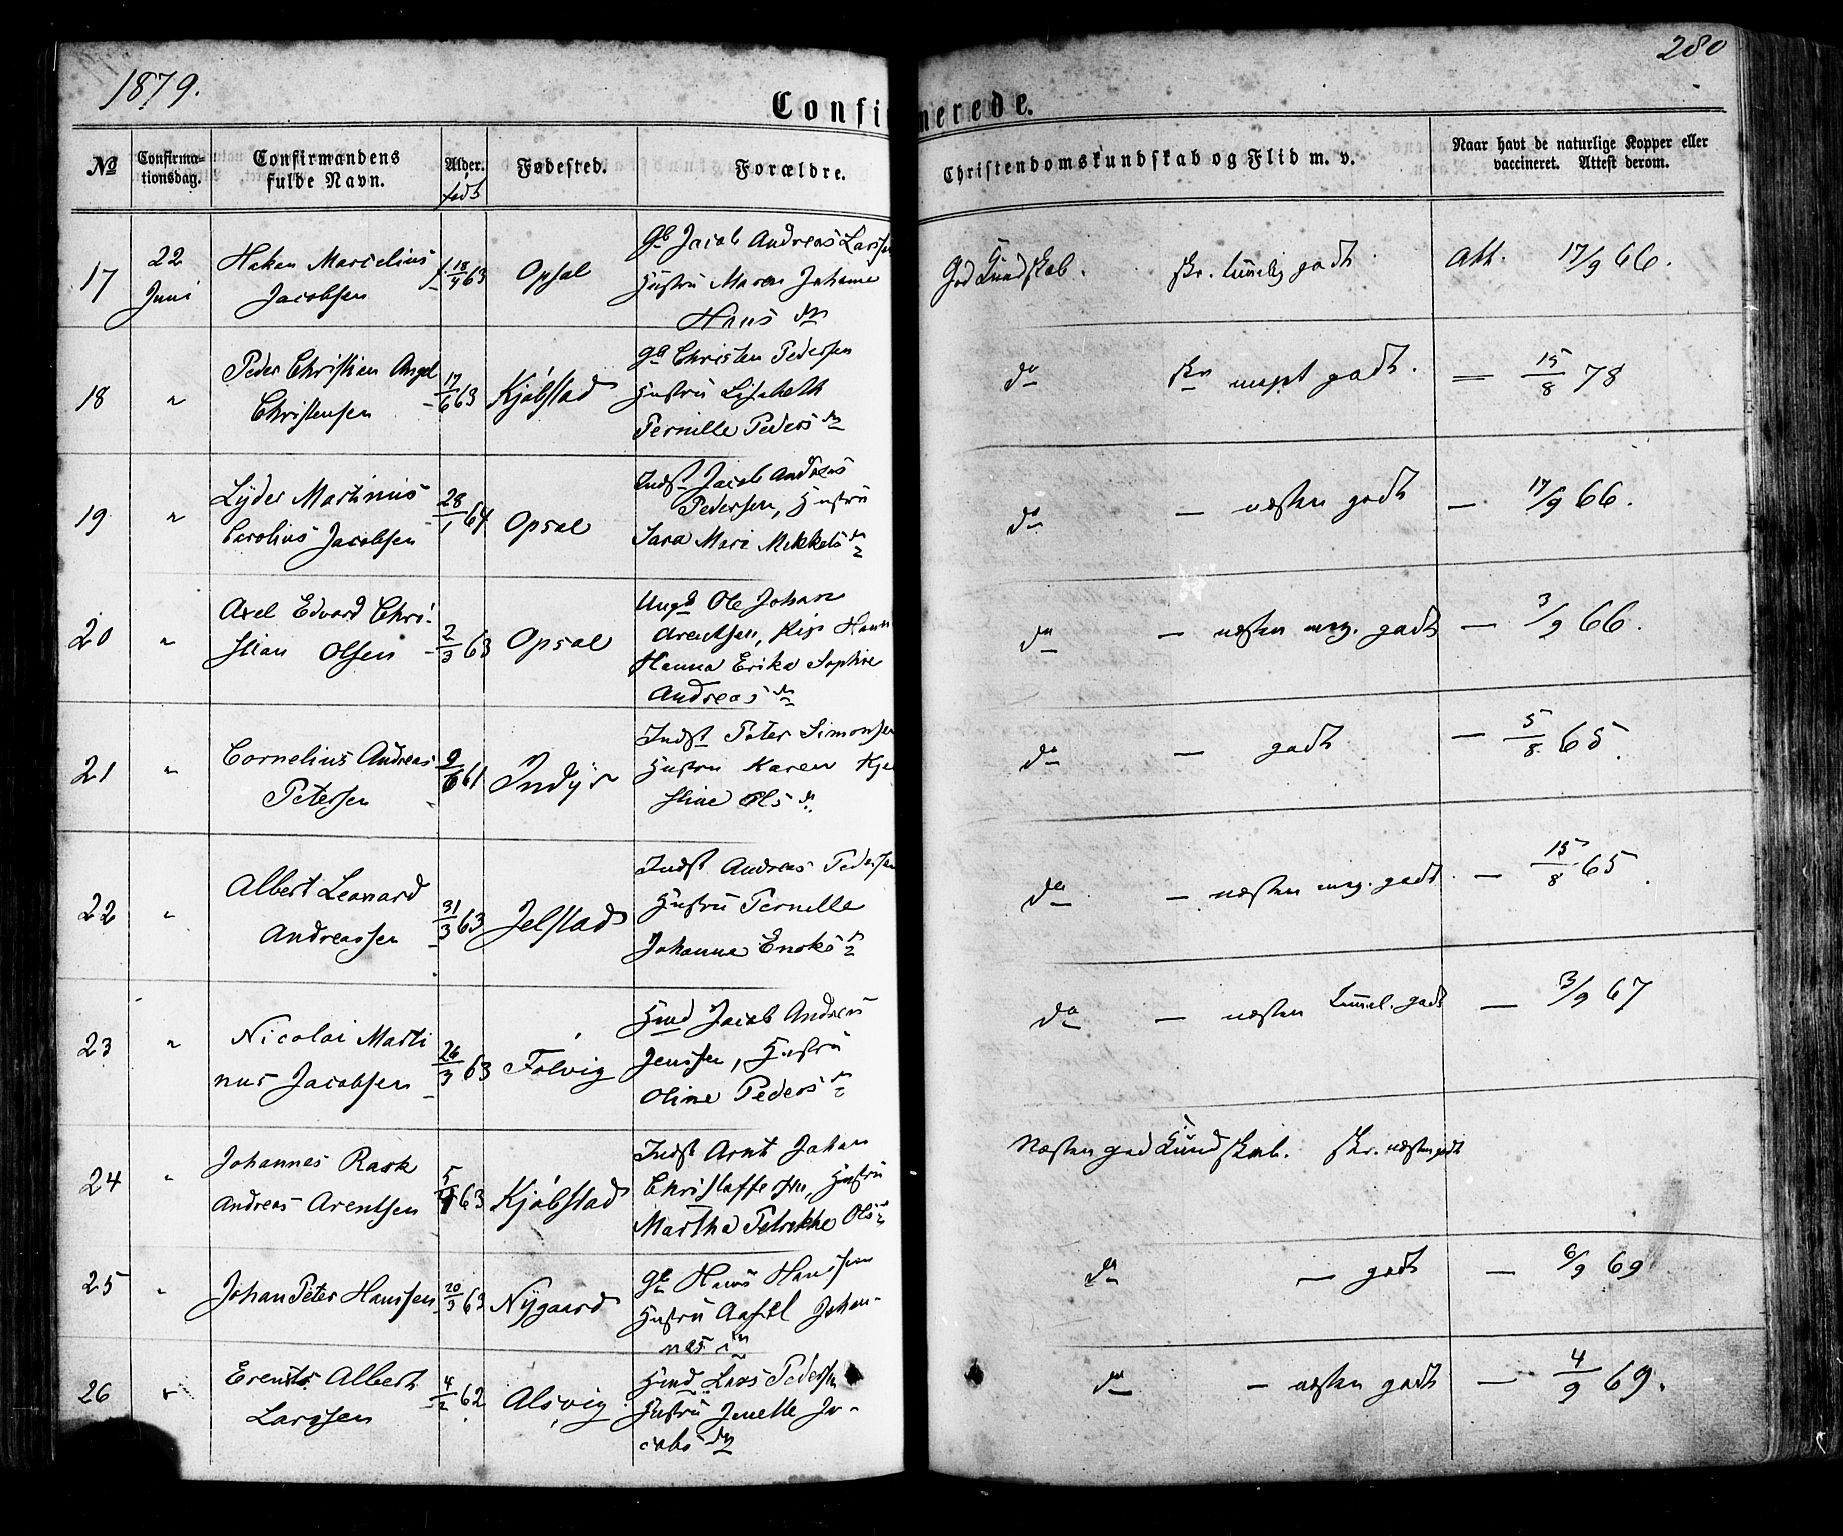 1879.
280
Confirmerede.
No
Confirma-
tionsdag.
Confirmandens
fulde Navn.
Alder.
født
Fødested.
Forældre.
Christendomskundskab og Flid m. v.
Naar havt de naturlige Kopper eller
vaccineret. Attest derom.
17
22
Juni
Hakon Marselius
Jacobsen
18/4 63
Opsal
Gb Jacob Andreas Larssen
Hustru Maren Johanna
Hans dn
God Kundskab. skr. temmelig godt
Att. 17/9 66.
18
"
Peder Christian Angel
Christensen
17/6 63
Kjøbstad
Gb Christen Pedersen
Hustru Lisabeth
Pernille Peders dn
do skr meget godt.
— 15/8 78
19
"
Lyder Martinus
Carolius Jacobsen
28/1 64
Opsal
Indst Jacob Andreas
Pedersen, Hustru
Sara Mari Mikkels dn
do — næsten godt
— 17/9 66.
20
"
Axel Edvard Chri-
stian Olsen
2/3 63
Opsal
Ungk Ole Johan
Arentsen, Pige
Hanna Erika Sophie
Andreas dn
do — næsten meg. godt
— 3/9 66.
21
"
Cornelius Andreas
Petersen
9/6 61
Indyr
Indst Peter Simonsen
Hustru Karen Kje
stine Ols dn
do — godt
— 5/8 65.
22
"
Albert Leonard
Andreassen
31/3 63
Jelstad
Indst Andreas Pedersen
Hustru Pernelle
Johanna Enoks dn
do — næsten meg. godt
— 15/8 65.
23
"
Nicolai Marti
nus Jacobsen
26/3 63
Følvig
Hmd Jacob Andreas
Jenssen, Hustru
Oline Peders dn
do — næsten temmel. godt
— 3/9 67
24
"
Johannes Rask
Andreas Arentsen
5/4 63
Kjøbstad
Indst Arnt Johan
Christoffersen, Hustru
Martha Petrikke Ols dn
Næsten god Kundskab. skr. næsten godt
25
"
Johan Peter Hanssen
20/3 63
Nygaard
Gb Hans Hanssen
Hustru Aasel Johan-
nes dn
do — godt
— 6/9 69
26
"
Albert
Larssen
4/2 62
Alsvig
Hmd Lars Pedersen
Hustru Jenelle Ja-
cobs dn
do — næsten godt
— 4/9 69.